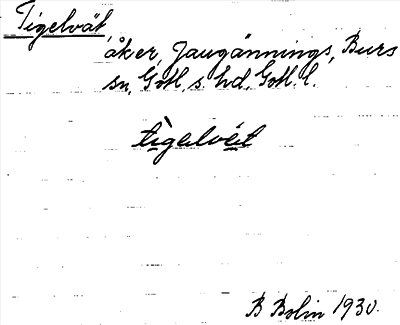 Tigelvät
åker, Jaugännings, Burs
sn, Gotl. s. hd, Gotl. l.
tìgalvét
B Bolin 1930.